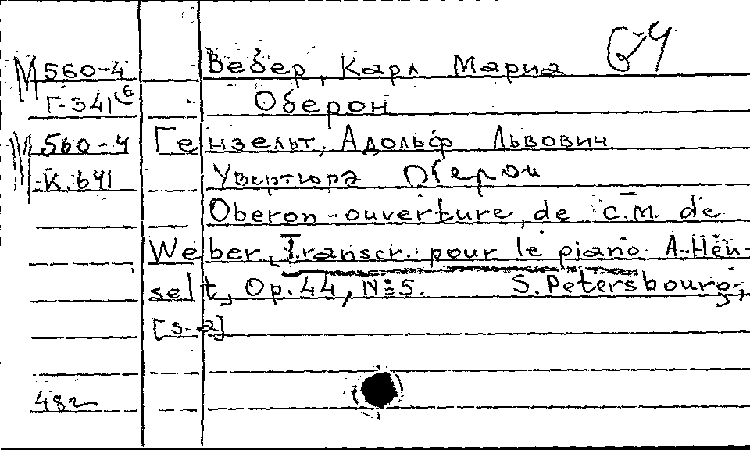 М 560-4 Вебер, Карл Мария 64
Г-341 Оберон
М 560-4 Гензельт, Адольф Львович
К.641 Увертюра Оберон
Oberon-ouverture, de C.M. de
Weber, Transcr. pour le piano A. Hen-
selt, Op. 44, №5. S. Petersbourg,
48г